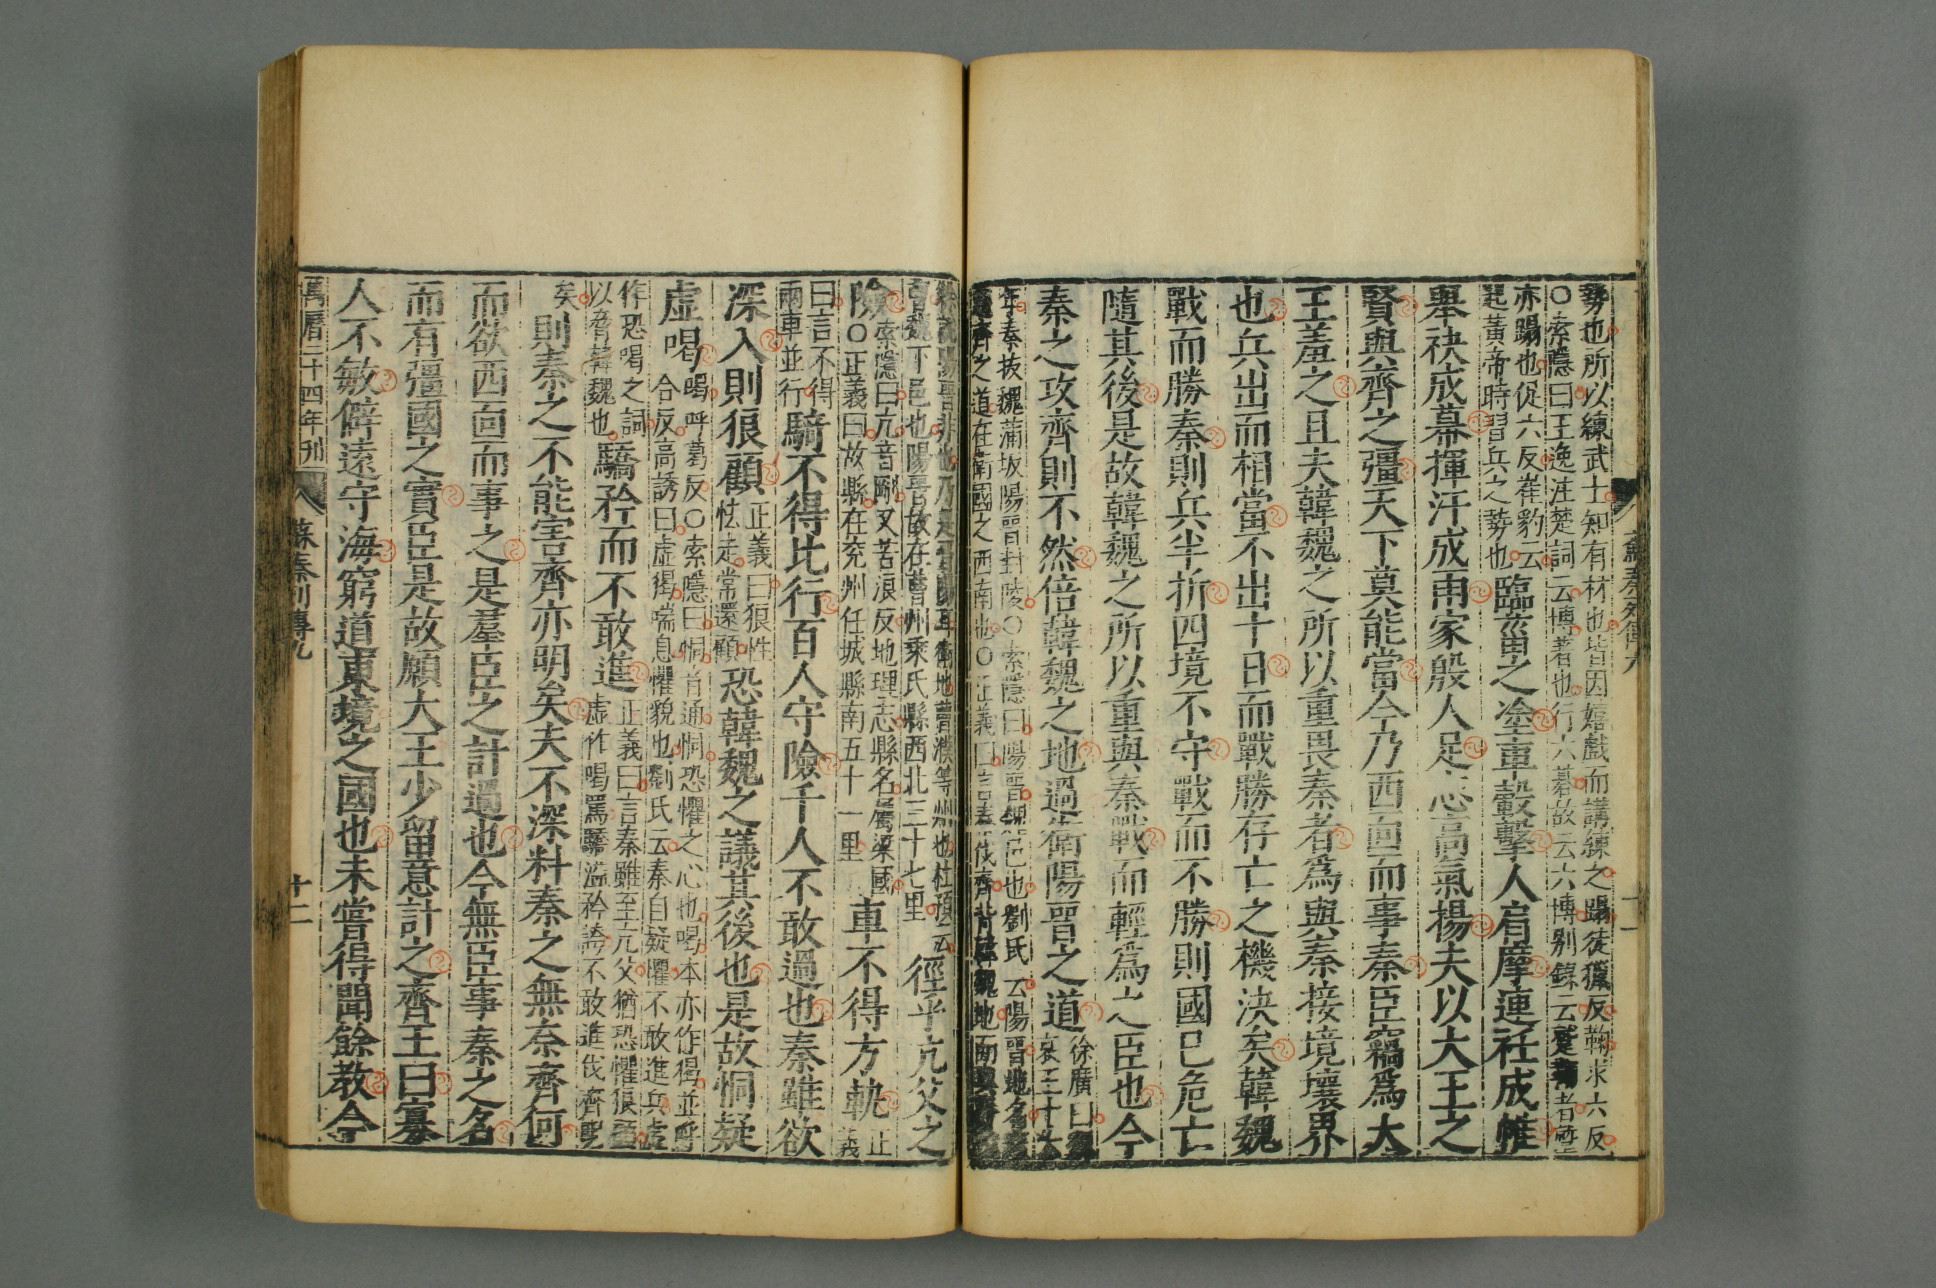 勢也所以練武士知有材也皆因嬉戲而講練之蹋徒獵反鞠求六反
○索隱曰王逸注楚詞云博著也行六棊故云六博別錄云蹵鞠者
亦蹋也促六反崔豹云
起黃帝時習兵之勢也
臨菑之塗車轂擊人肩摩連衽成帷
舉袂成幕揮汗成雨家殷人足志高氣揚夫以大王之
賢與齊之彊天下莫能當今乃西面而事秦臣竊爲大
王羞之且夫韓魏之所以重畏秦者爲與秦接境壤界
也兵出而相當不出十日而戰勝存亡之機決矣韓魏
戰而勝秦則兵半折四境不守戰而不勝則國已危亡
隨其後是故韓魏之所以重與秦戰而輕爲之臣也今
秦之攻齊則不然倍韓魏之地過衛陽晉之道
徐廣曰魏
哀王十六
年秦拔魏蒲坂陽晉封陵○索隱曰陽晉魏邑也劉氏云陽晉地名
之道在衛國之西南也○正義曰言秦伐齊背韓魏地
曹州也杜預云
晉魏下邑也陽晉故在曹州乘氏縣西北三十七里
徑乎亢父之
險
索隱曰亢音剛又苦浪反地理志縣名屬梁國
○正義曰故縣在兖州任城縣南五十一里
車不得方軌
正
義
曰言不得
兩車並行
騎不得比行百人守險千人不敢過也秦雖欲
深入則狼顧
正義曰狼性
怯走常還顧
恐韓魏之議其後也是故恫疑
虛喝
喝呼葛反○索隱曰恫音通恫恐懼之心也喝本亦作猲並呼
合反高誘曰虛猲喘息懼貌也劉氏云秦自疑懼不敢進兵虛
作恐喝之詞
以脅韓魏也
驕矜而不敢進
正義曰言秦雖至亢父猶恐懼狼顧
虛作喝罵驕溢矜誇不敢進伐齊明
矣
則秦之不能害齊亦明矣夫不深料秦之無奈齊何
而欲西面而事之是羣臣之計過也今無臣事秦之名
而有彊國之實臣是故願大王少留意計之齊王曰寡
人不敏僻遠守海窮道東境之國也未嘗得聞餘教今
萬曆二十四年刊
蘇秦列傳九
十二